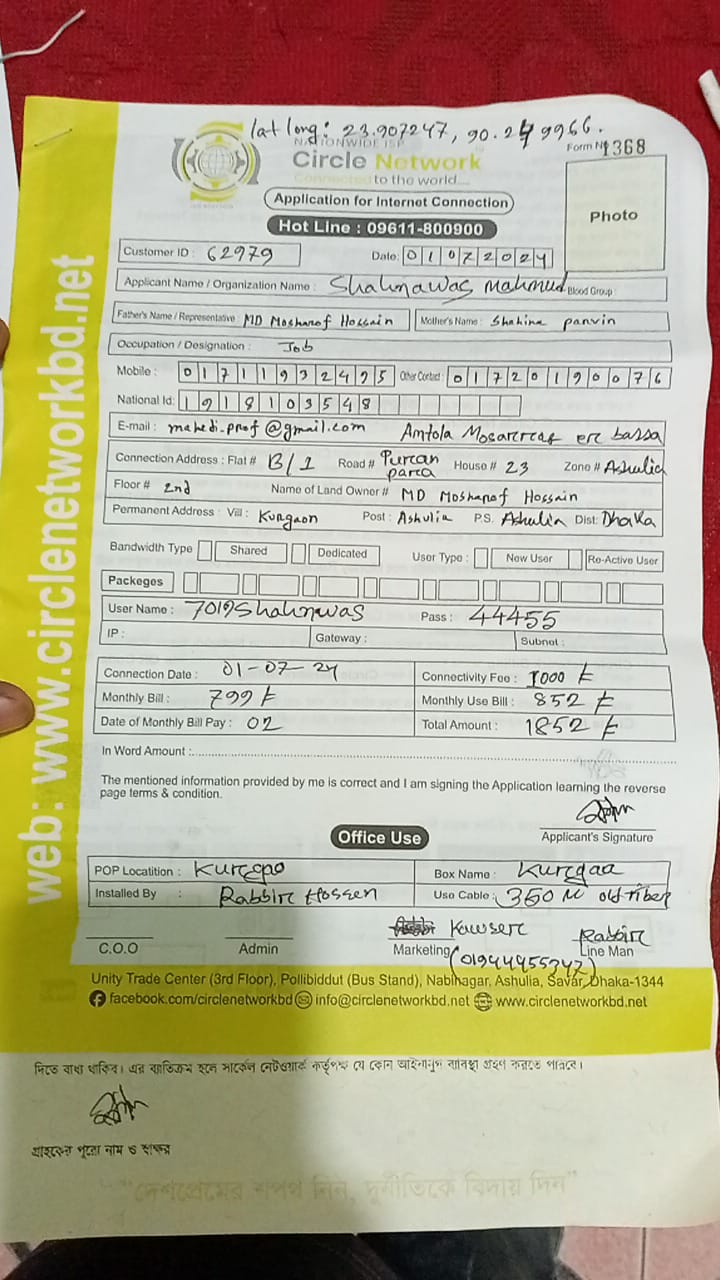 lat long: 23.907247, 90.279966.
NATIONWIDE ISP
Circle Network
Connected to the world....
Form No 1368
Application for Internet Connection
Hot Line : 09611-800900
Photo
Customer ID : 62979 Date: 01072024
Applicant Name / Organization Name : Shahnawas Mahmud Blood Group:
Father's Name / Representative : MD Mosharof Hossain Mother's Name : Shahina panvin
Occupation / Designation : Job
Mobile : 01711932495 Other Contact : 01720190076
National Id: 1918103548
E-mail : mahedi_prof@gmail.com Amtola Mosarrraf err bassa
Connection Address : Flat # B/1 Road # Purran parra House # 23 Zone # Ashulia
Floor # 2nd Name of Land Owner # MD Mosharof Hossain
Permanent Address : Vill : Kurgaon Post : Ashulia P.S. Ashulia Dist: Dhaka
Bandwidth Type Shared Dedicated User Type : New User Re-Active User
Packeges
User Name : 7019Shahnawas Pass : 44455
IP : Gateway : Subnet :
Connection Date : 01-07-24 Connectivity Fee : 1000 ৳
Monthly Bill : 799 ৳ Monthly Use Bill : 852 ৳
Date of Monthly Bill Pay : 02 Total Amount : 1852 ৳
In Word Amount :
The mentioned information provided by me is correct and I am signing the Application learning the reverse
page terms & condition.
Applicant's Signature
Office Use
POP Locatition : Kurgao Box Name : Kurgaa
Installed By : Rabbir Hossen Use Cable : 350 M old fiber
Kawser Rabbir
C.O.O Admin Marketing Line Man
(01944955347)
Unity Trade Center (3rd Floor), Pollibiddut (Bus Stand), Nabinagar, Ashulia, Savar, Dhaka-1344
facebook.com/circlenetworkbd info@circlenetworkbd.net www.circlenetworkbd.net
web: www.circlenetworkbd.net
দিতে বাধ্য থাকিব। এর ব্যতিক্রম হলে সার্কেল নেটওয়ার্ক কর্তৃপক্ষ যে কোন আইনানুগ ব্যবস্থা গ্রহণ করতে পারিবে।
গ্রাহকের পুরো নাম ও স্বাক্ষর
“দেশপ্রেমের শপথ নিন, দুর্নীতিকে বিদায় দিন”